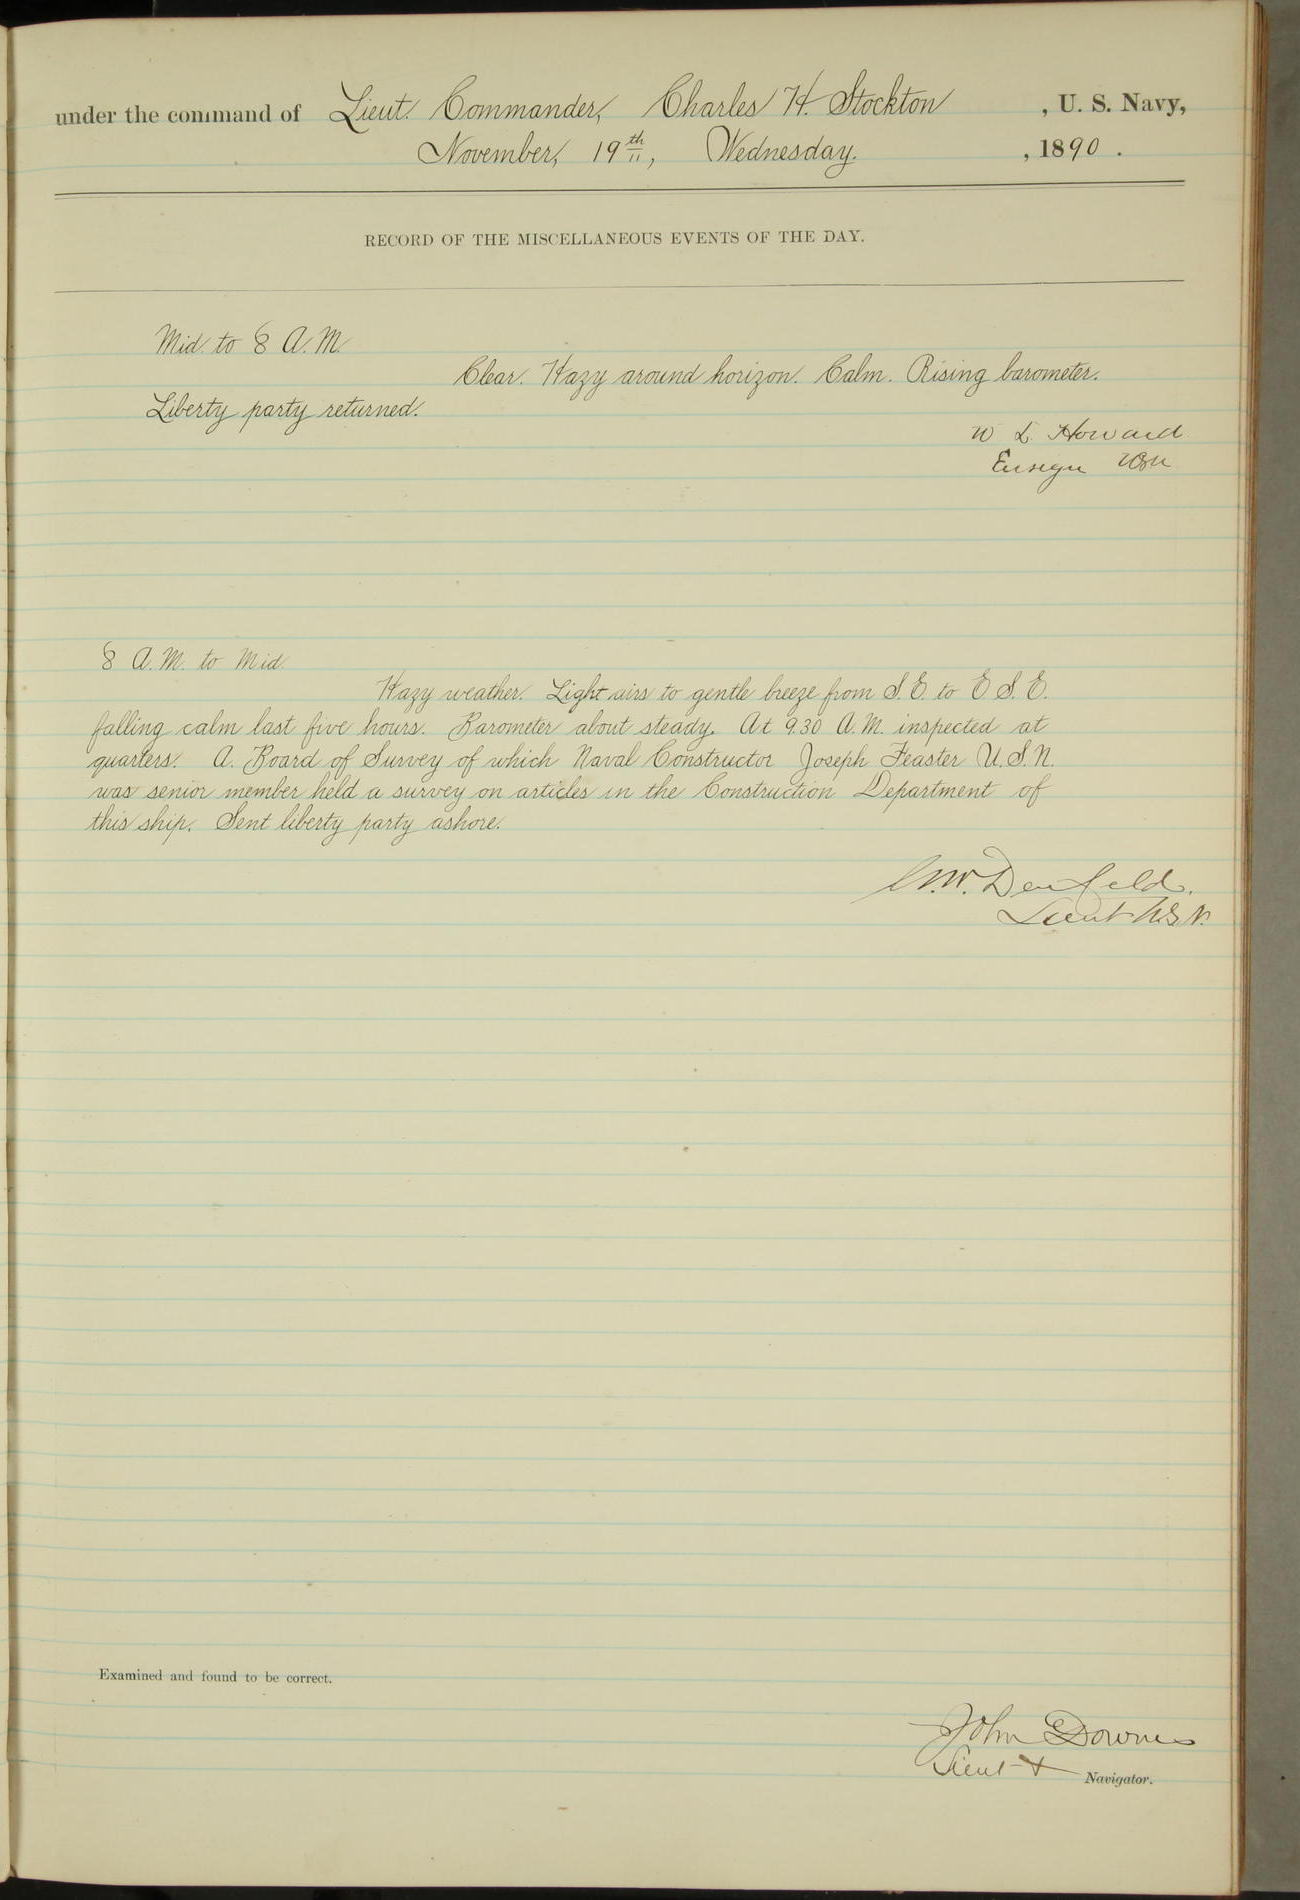 under the command of Lieut. Commander, Charles H. Stockton , U. S. Navy,
November, 19th, Wednesday. , 1890 .
RECORD OF THE MISCELLANEOUS EVENTS OF THE DAY.
Mid. to 8 A.M.
Clear. Hazy around horizon. Calm. Rising barometer.
Liberty party returned.
W L Howard
Ensign USN
8 A.M. to Mid.
Hazy weather. Light airs to gentle breeze from S.E. to E S.E.
falling calm last five hours. Barometer about steady. At 9.30 A.M. inspected at
quarters. A. Board of Survey of which Naval Constructor Joseph Feaster U.S.N.
was senior member held a survey on articles in the Construction Department of
this ship. Sent liberty party ashore.
Denfeld.
Lieut U.S.N.
Examined and found to be correct.
John Downes
Lieut + Navigator.